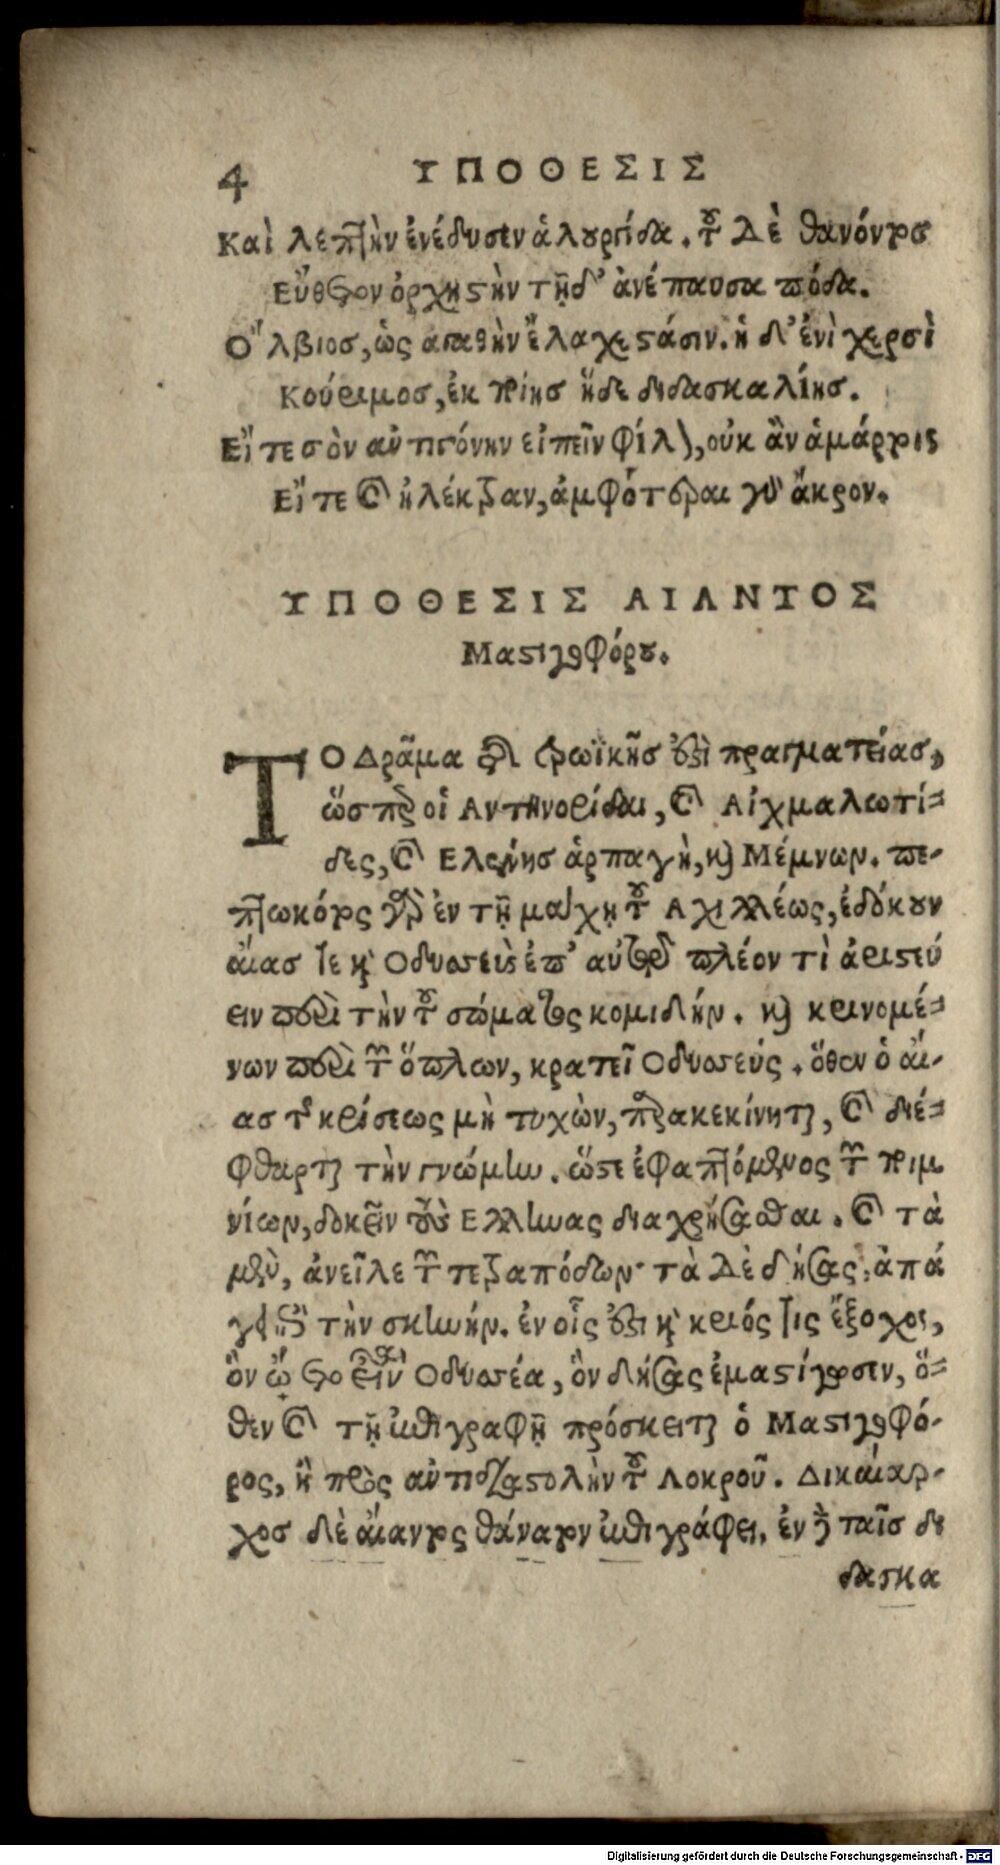 4 ΥΠΟΘΕΣΙΣ
Καὶ λεπτὴν ἐνέδυσεν ἁλουργίδα. τοῦ δὲ θανόντος
Εὔθετον ὀρχηστὴν τῇδ' ἀνέπαυσα πόδα.
Ὄλβιος, ὡς ἀγαθὴν ἔλαχες στάσιν. ἡ δ' ἐνὶ χερσὶ
Κούριμος, ἐκ ποίης ἥδε διδασκαλίης.
Εἴτε σὸν ἀντιγόνην εἰπεῖν φίλον, οὐκ ἂν ἁμάρτοις
Εἴτε καὶ ἠλέκτραν, ἀμφότεραι γὰρ ἄκρον.
ΥΠΟΘΕΣΙΣ ΑΙΑΝΤΟΣ
Μαστιγοφόρου.
ΤΟ Δρᾶμα τῆς τρωϊκῆς ἐστὶ πραγματείας,
ὥσπερ οἱ Αντηνορίδαι, καὶ Αἰχμαλωτί-
δες, καὶ Ελένης ἁρπαγὴ, καὶ Μέμνων. πε-
πτωκότος γὰρ ἐν τῇ μάχῃ τοῦ Αχιλλέως, ἐδόκουν
αἴας τε καὶ Οδυσσεὺς ἐπ' αὐτῷ πλέον τὶ ἀριστεύ
ειν περὶ τὴν τοῦ σώματος κομιδήν. καὶ κρινομέ-
νων περὶ τῶν ὅπλων, κρατεῖ Οδυσσεύς. ὅθεν ὁ αἴ-
ας τῆς κρίσεως μὴ τυχὼν, παρακεκίνηται, καὶ διέ-
φθαρται τὴν γνώμην. ὥστε ἐφαπτόμενος τῶν ποιμ
νίων, δοκεῖν τοὺς Ελληνας διαχρήσασθαι. καὶ τὰ
μὲν, ἀνεῖλε τῶν τετραπόδων· τὰ δὲ δήσας, ἀπά
γει ἐπὶ τὴν σκηνήν. ἐν οἷς ἐστι καὶ κριός τις ἔξοχος,
ὃν ᾤετο εἶναι Οδυσσέα, ὃν δήσας ἐμαστίγωσεν, ὅ-
θεν καὶ τῇ ἐπιγραφῇ πρόσκειται ὁ Μαστιγοφό-
ρος, ἢ πρὸς ἀντιδιαστολὴν τοῦ Λοκροῦ. Δικαίαρ-
χος δὲ αἴαντος θάνατον ἐπιγράφει. ἐν δὲ ταῖς δι
δασκα
Digitalisierung gefördert durch die Deutsche Forschungsgemeinschaft - DFG